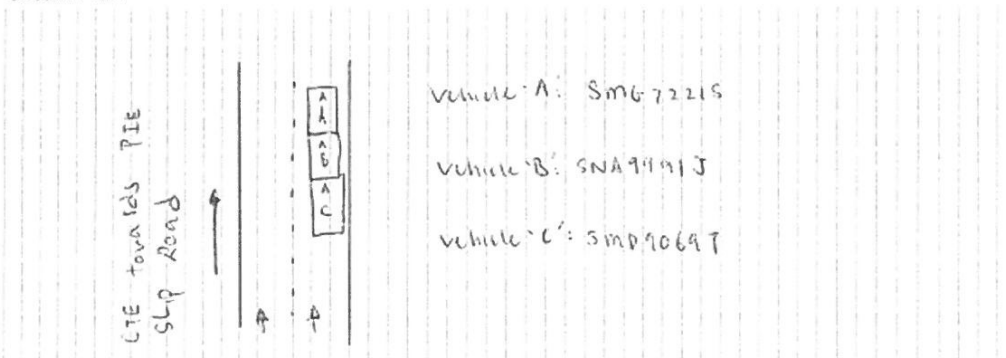 CTE towards PIE
Slip Road
A
B
C
Vehicle 'A': SMG7221S
Vehicle 'B':
Vehicle 'C': SMP9069T